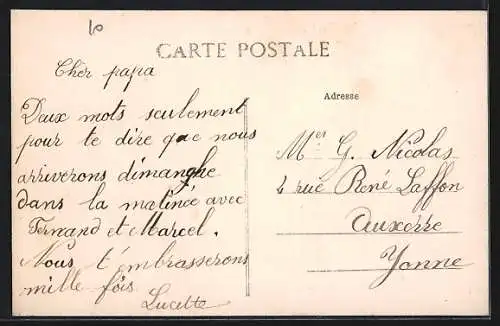 10
CARTE POSTALE
Cher papa
Deux mots seulement
pour te dire que nous
arriverons dimanche
dans la matinée avec
Fernand et Marcel.
Nous t'embrasserons
mille fois
Lucette
Adresse
G. Nicolas
rue René Laffon
Auxerre
Yonne